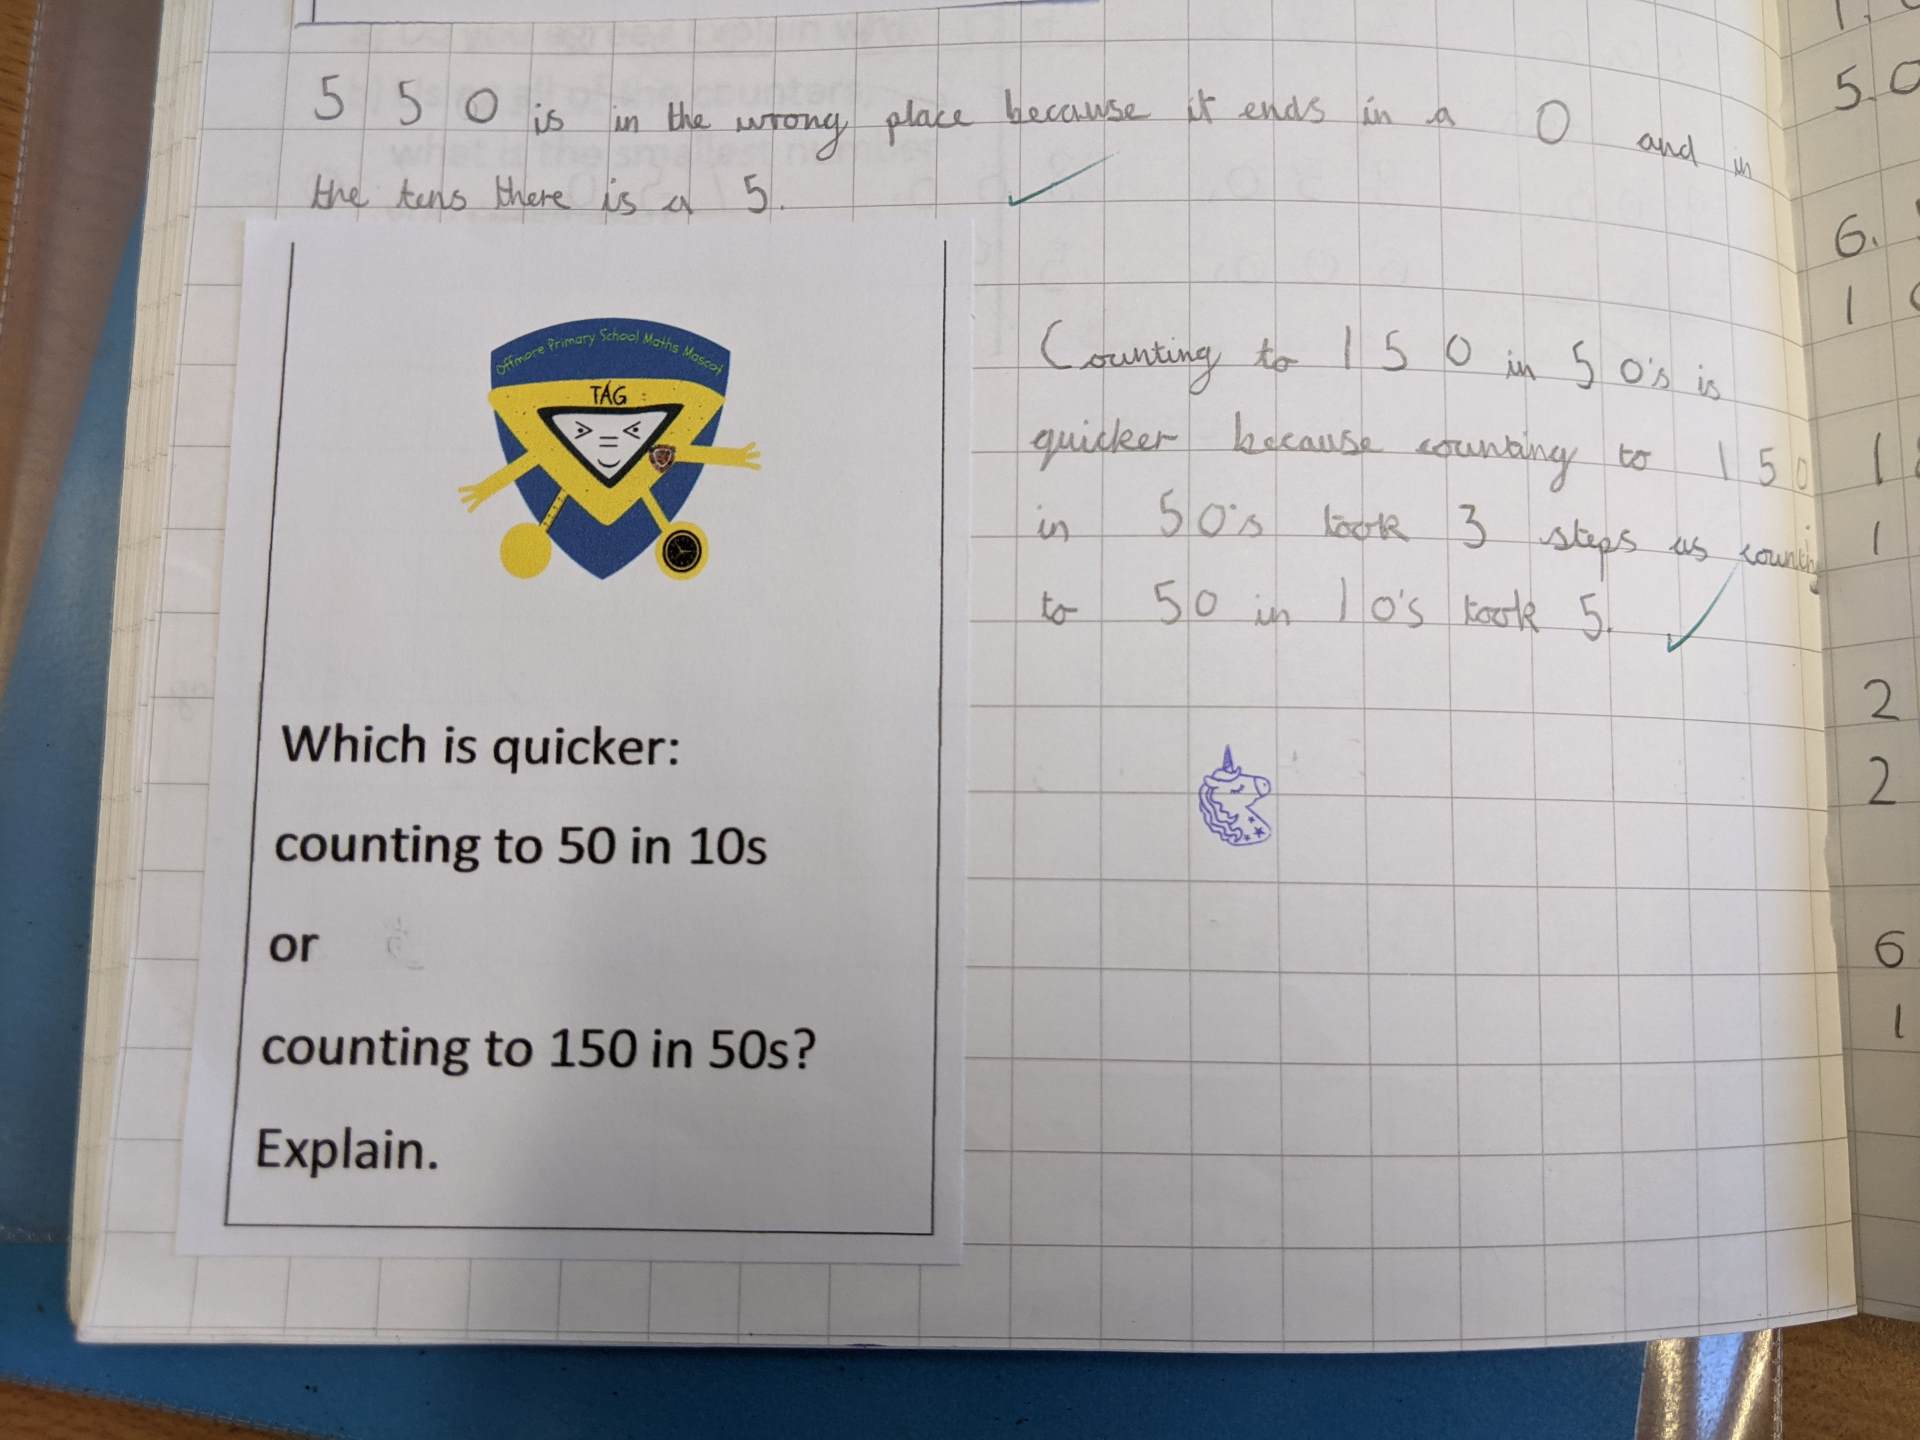 550 is in the wrong place because it ends in a 0 and in
the tens there is a 5.
Offmore Primary School Maths Mascot
TAG
Which is quicker:
counting to 50 in 10s
or
counting to 150 in 50s?
Explain.
Counting to 150 in 50's is
quicker because counting to 150
in 50's took 3 steps as counting
to 50 in 10's took 5.
5.0
6.
1
1
1
2
2
6
1